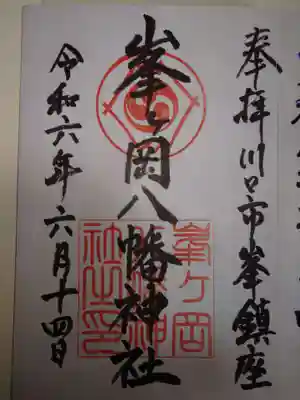 奉拝川口市峯鎮座
峯ヶ岡八幡神社
峯ヶ岡八幡神社之印
令和六年六月十四日